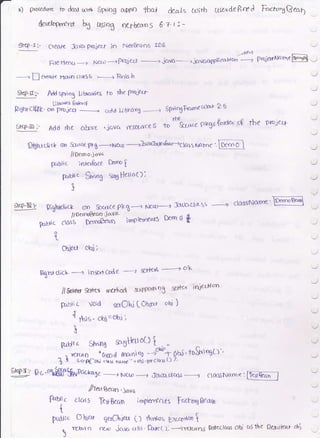 procedure to deal with Spring appn that deals with userdefined FactoryBean
development by using netbeans 6.7.1:-
Step-I:- Create Java Project in NetBeans IDE
File Menu → New → Project → Java → Java application → next → ProjectName
→ create Main class → Finish
Step-II:- Add spring Libraries to the project
Libraries folder
Right click on project → add Library → Spring Framework 2.5
Step-III:- Add the above java resources to Source pkgs folder of the project
Right click on Source pkg → New → className: Demo
//Demo.java
public interface Demo {
public String sayHello();
}
Step-IV:- Right click on Source pkg → New → Java class → className: DemoBean
//DemoBean.java
public class DemoBean implements Demo
{
Object obj;
Right click → insert code → setter → ok
//setter method supporting setter injection
public void setObj(Object obj)
{
this.obj=obj;
}
public String sayHello() {
return "Good morning" + obj.toString();
}
}
Package → New → Java class → className: TestBean
//TestBean.java
Public class TestBean implements FactoryBean
{
public Object getObject() throws Exception {
return new java.util.Date();